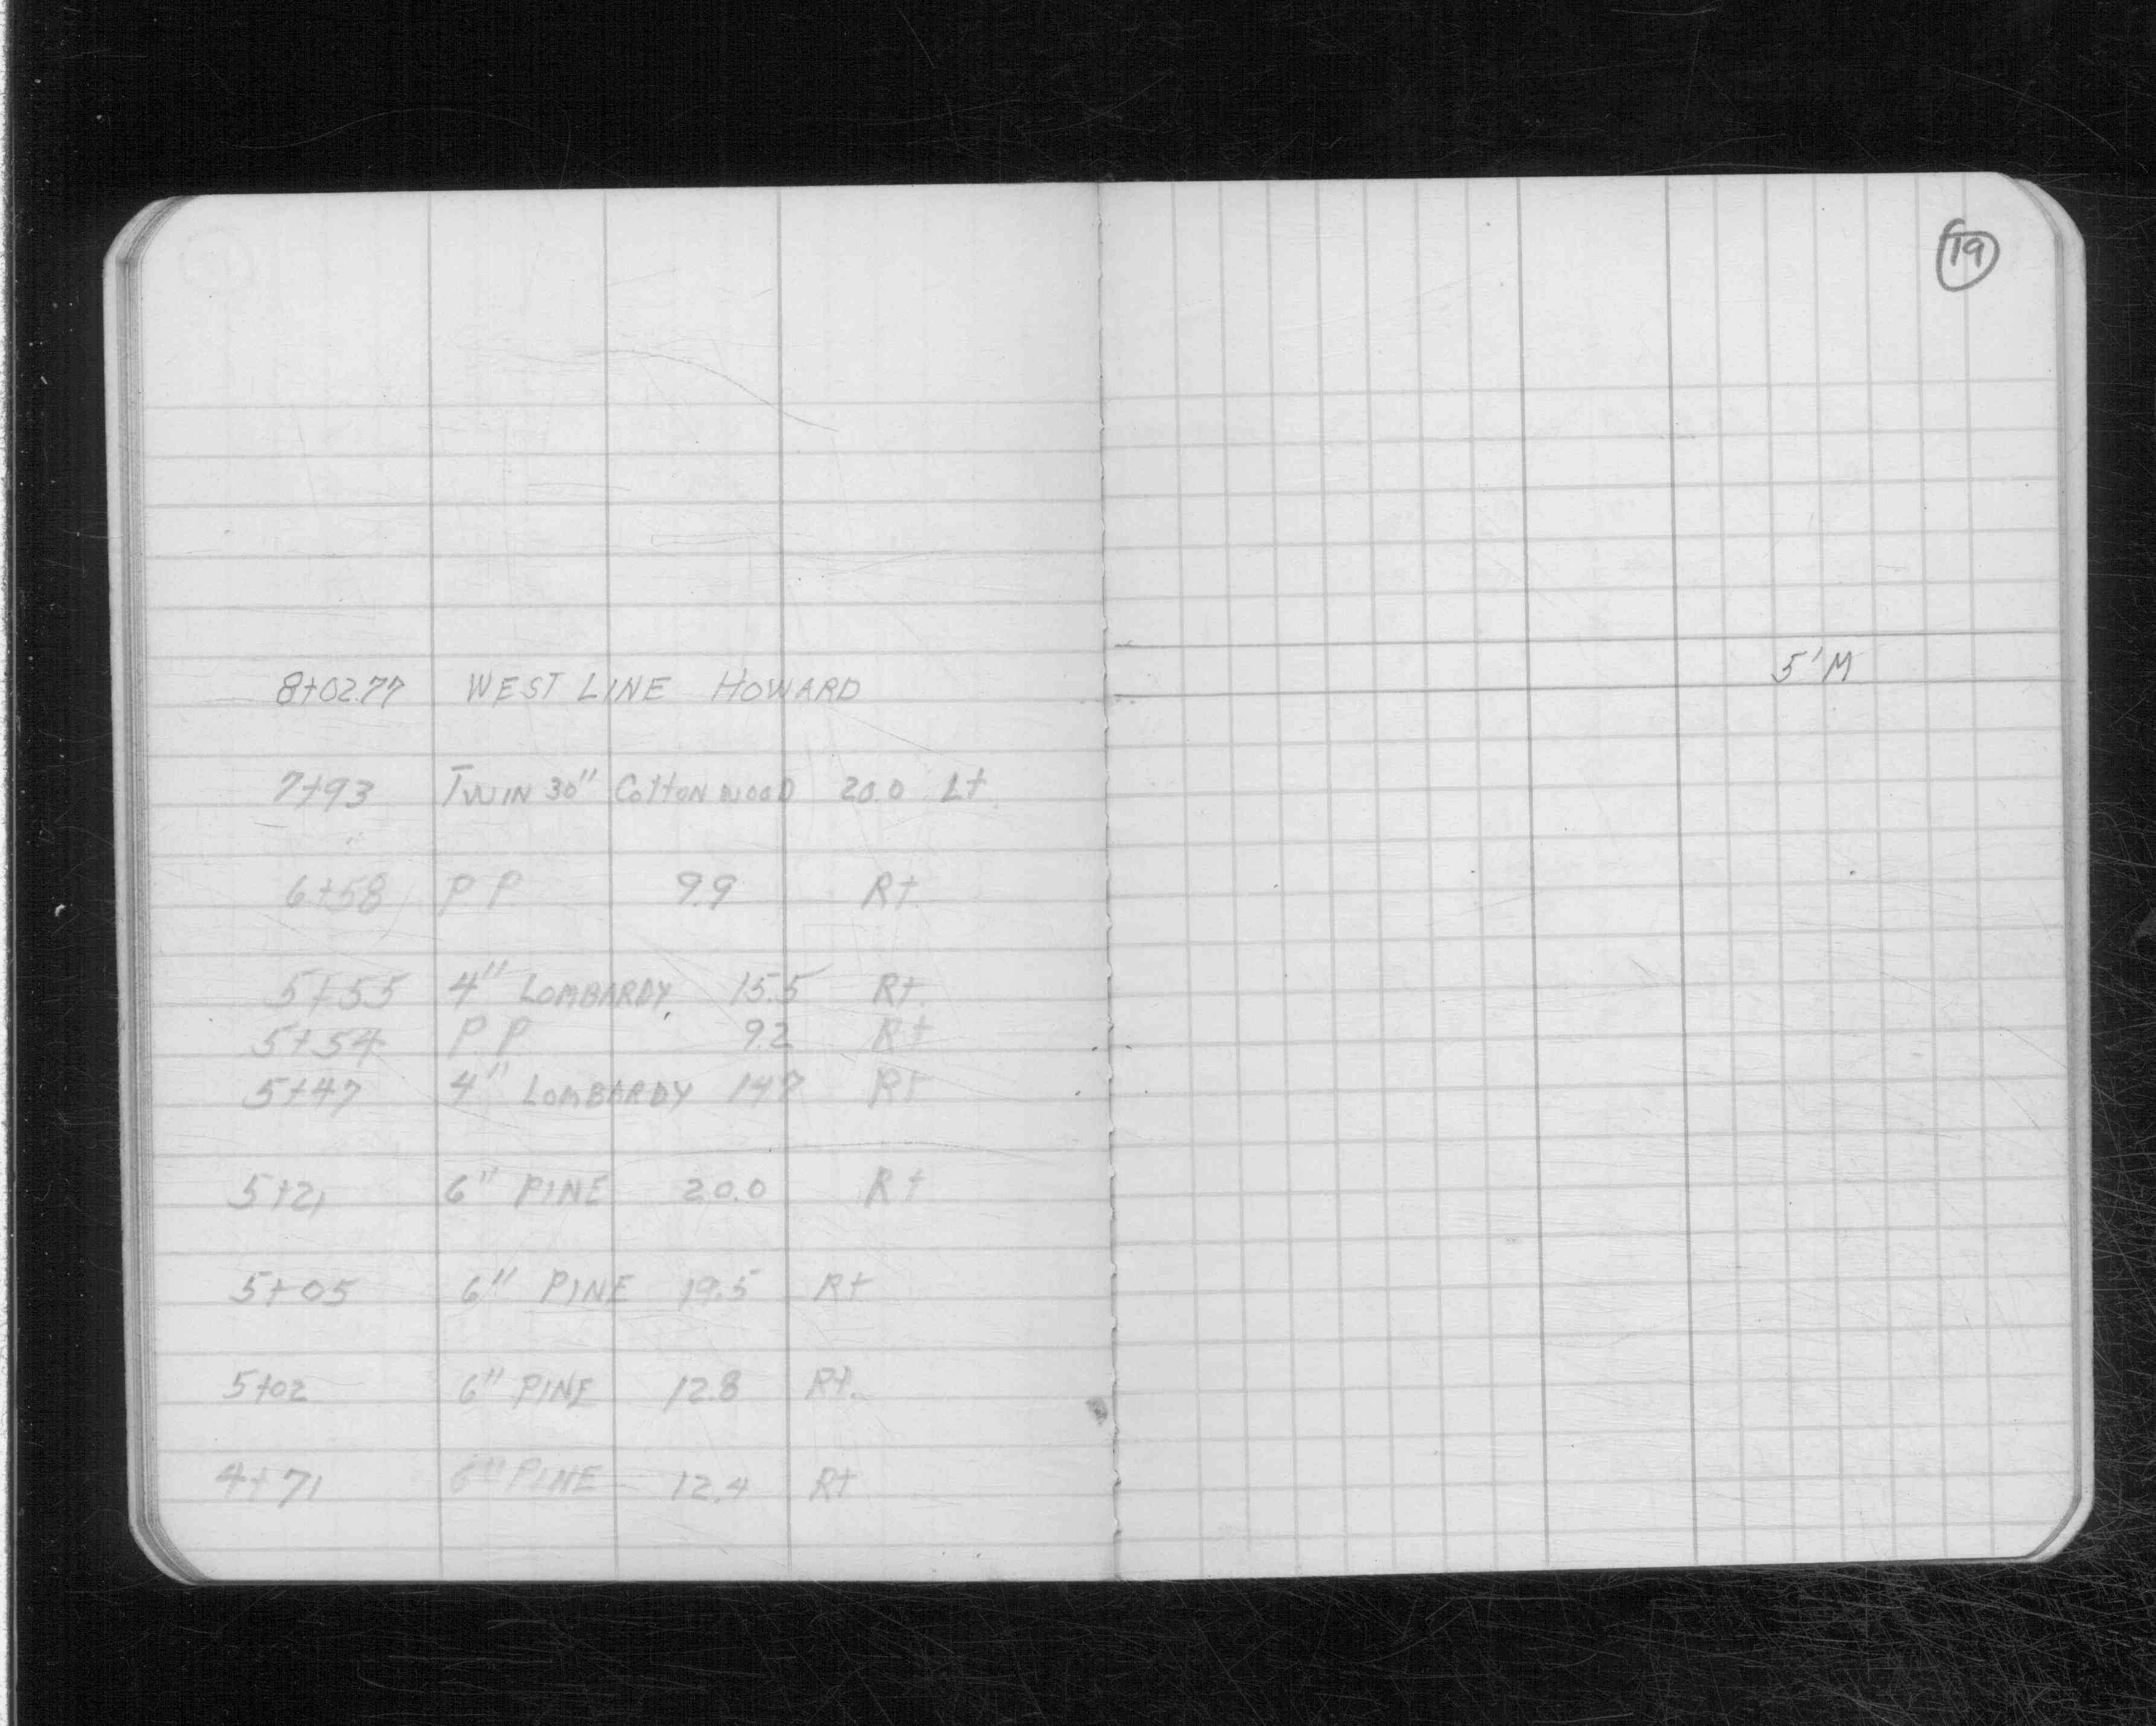 19
5'M
8+02.77 WEST LINE HOWARD
7+93 TWIN 30" COTTONWOOD 20.0 Lt.
6+58 P.P. 9.9 Rt.
5+55 4" LOMBARDY 15.5 Rt.
5+54 P.P. 9.2 Rt
5+47 4" LOMBARDY Rt
5+21 6" PINE 20.0 Rt
5+05 6" PINE 19.5 Rt
5+02 6" PINE 12.8 Rt.
4+71 6" PINE 12.4 Rt